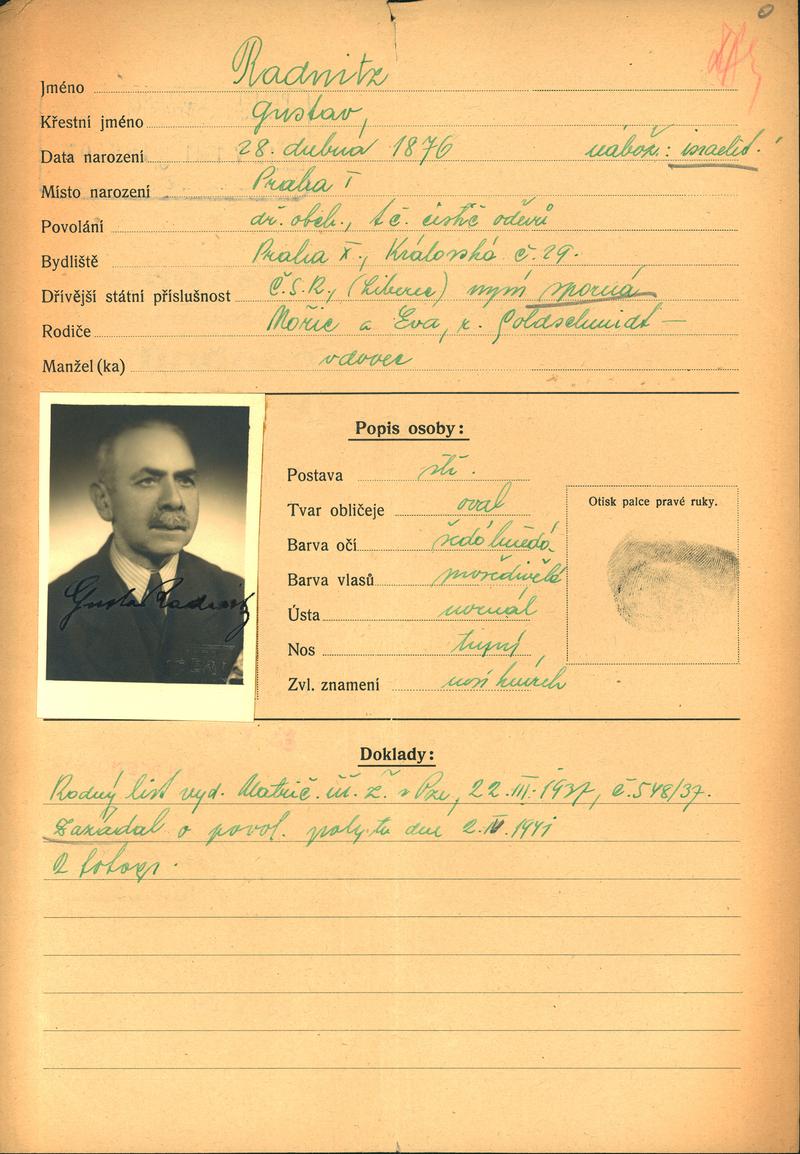 Jméno Radnitz
Křestní jméno Gustav,
Data narození 28. dubna 1876 nábož.: israelit.
Místo narození Praha I
Povolání dř. obch., t.č. čistič oděvů
Bydliště Praha X., Královská č. 29.
Dřívější státní příslušnost Č.S.R., (Liberec) nyní sporná
Rodiče Mořic a Eva, r. Goldschmidt —
Manžel(ka) vdovec
Popis osoby:
Postava stř.
Tvar obličeje oval
Barva očí šedohnědá
Barva vlasů prošedivělá
Ústa normál
Nos tupý
Zvl. znamení nosí knírek
Otisk palce pravé ruky.
Gustav Radnitz
Doklady:
Rodný list vyd. Matrič. úř. ž. v Pze, 22.III.1937, č. 548/37.
Zažádal o povol. pobytu dne 2.IV.1941
2 fotogr.